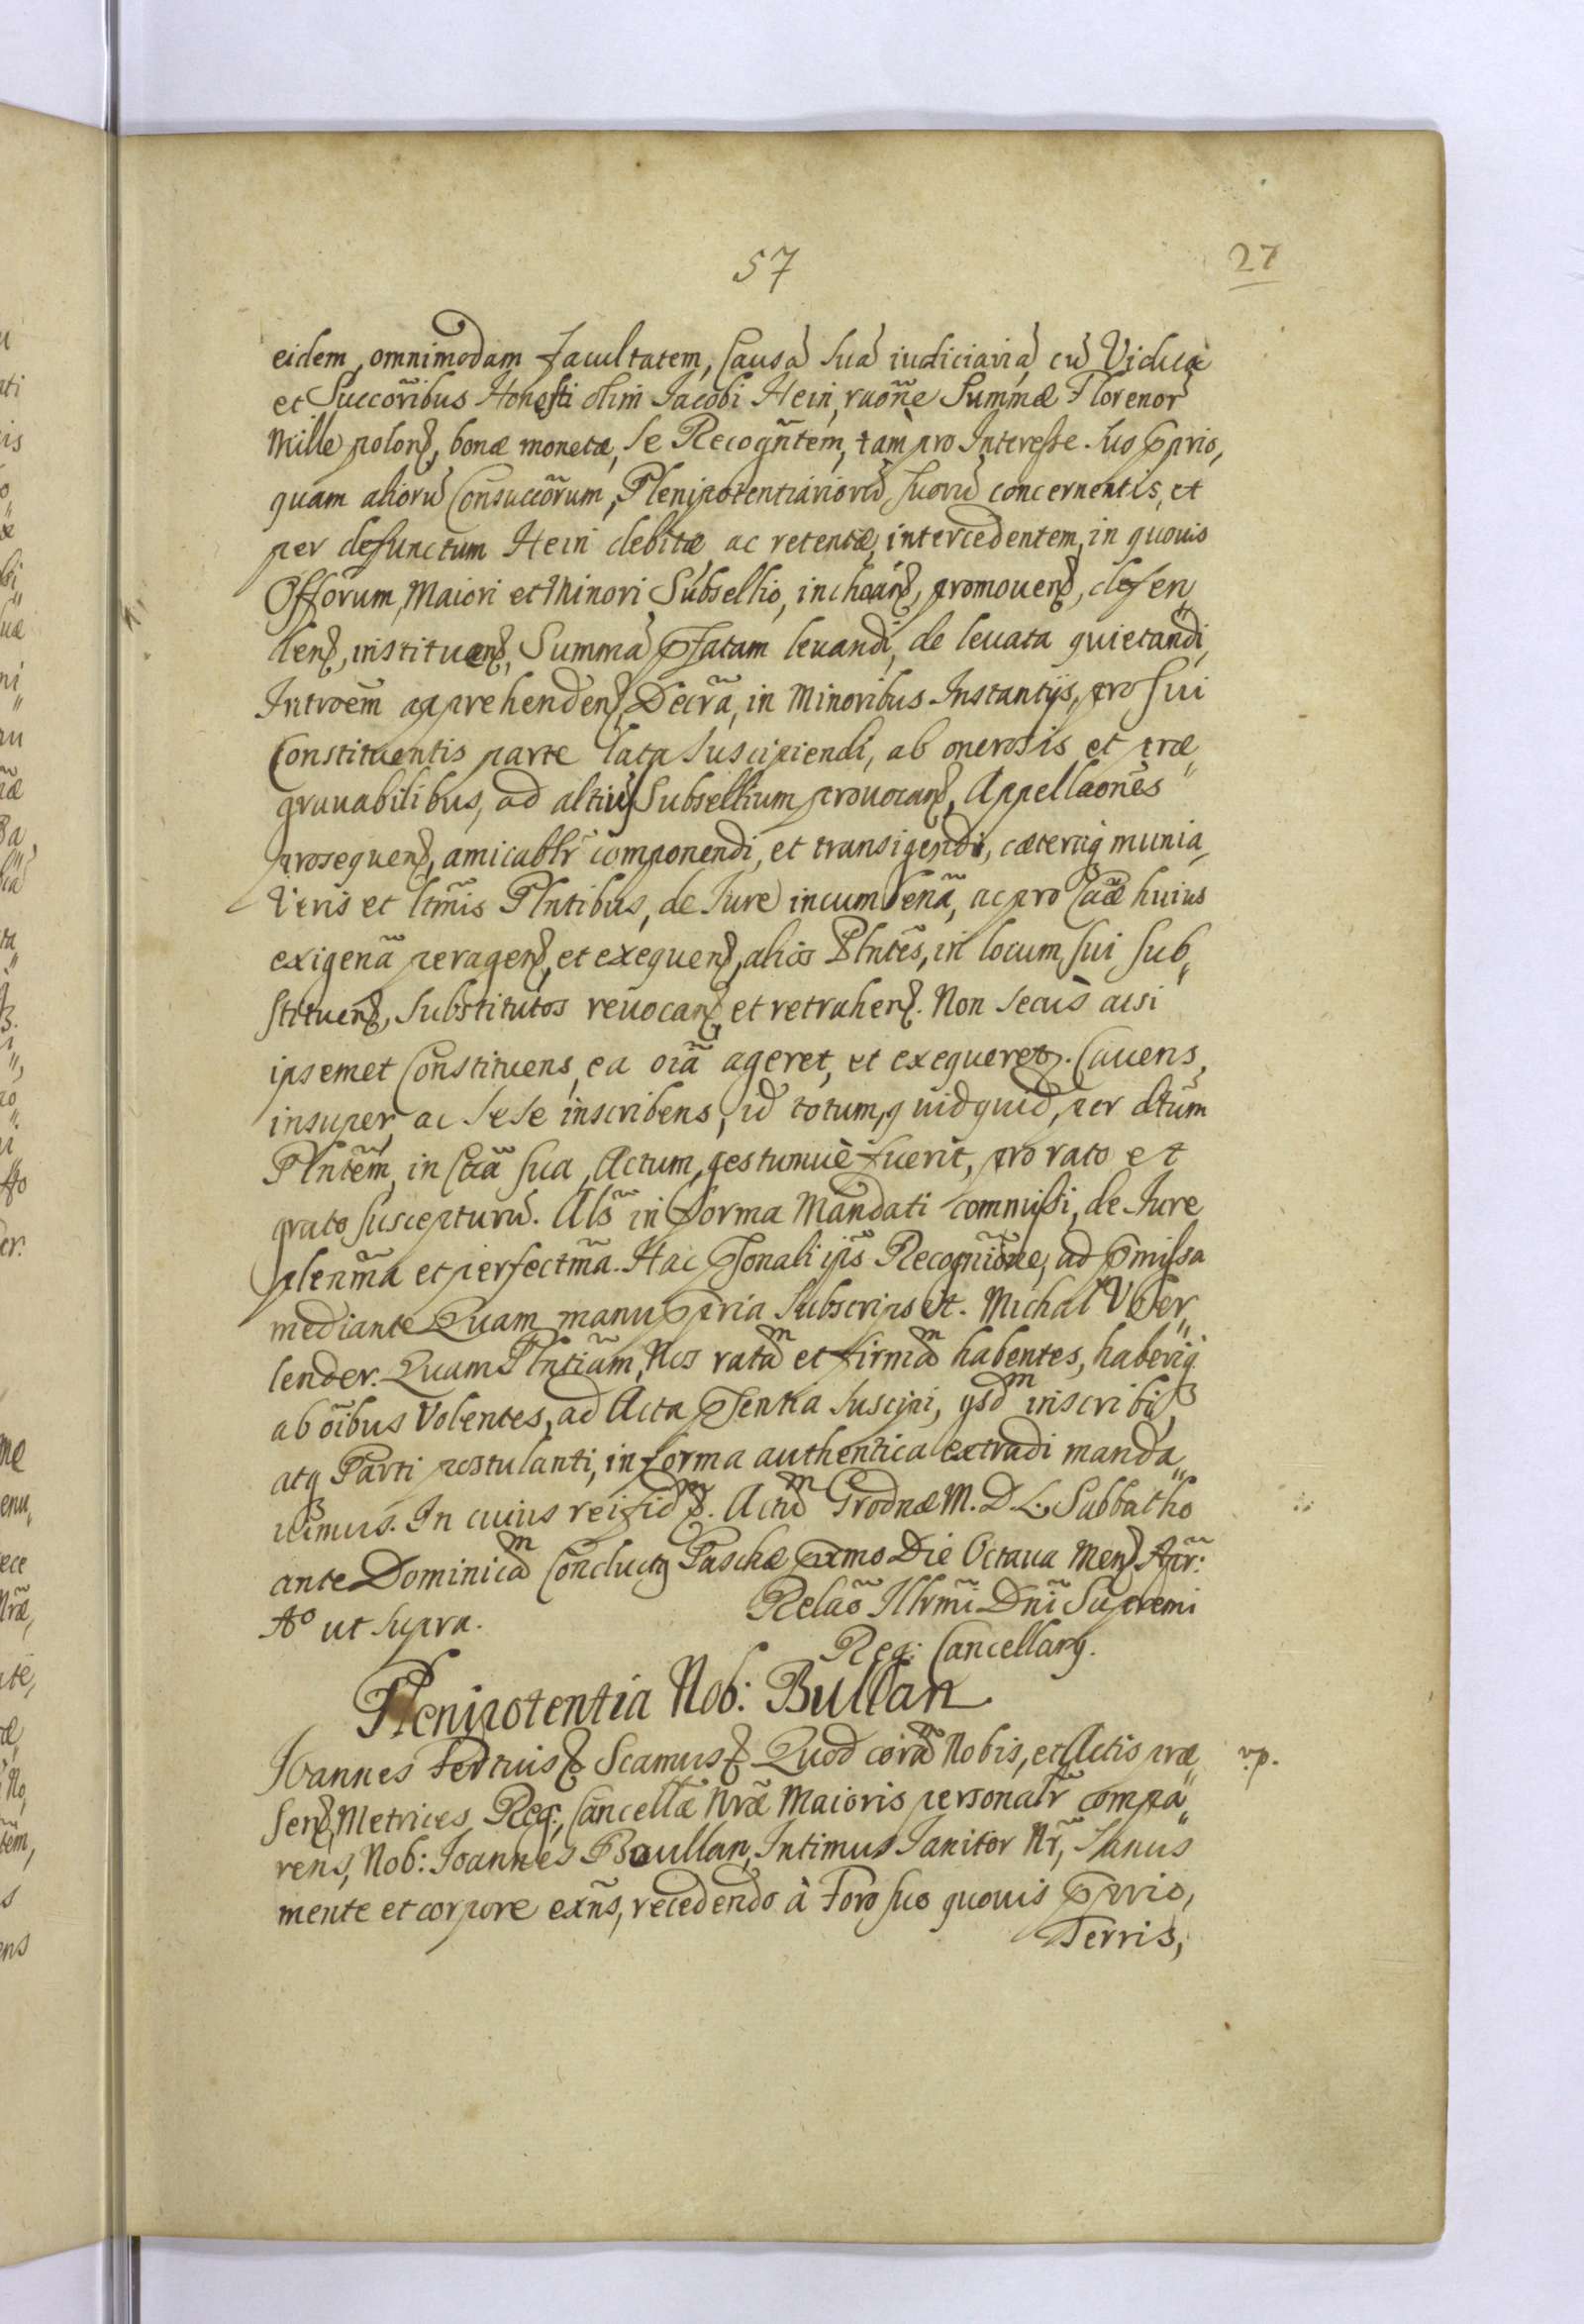 57
27
eidem, omnimodam facultatem, Causã suã iudiciariã, cũ Viduâ
et Succõribus Honesti olim Jacobi Hein, raõne Summæ Florenor̃
Mille poloñ, bonæ monetæ, se Recogñtem, tam pro Interesse suo p̱prio,
quam aliorũ Coñsuccõrum, Plenipotentiariorũ suorũ concernentis, et
per defunctum Hein debitæ ac retentæ, intercedentem, in quouis
Offõrum, Maiori et Minori Subsellio, inchoañ, promoueñ, defen„
deñ, instituenñ, Summã p̱fatam leuandi, de leuata quietandi,
Introẽm apprehendeñ, Decrã, in Minoribus Instantijs, pro sui
Constituentis parte lata suscipiendi, ab onerosis et præ„
grauabilibus, ad altius Subsellium prouocañ, Appellaões
prosequeñ, amicablr̃ componendi, et transigendi, cæteraq; munia,
Veris et ltm̃is Plñtibus, de Jure incumbeñã, ac pro Cãæ huius
exigenã perageñ, et exequeñ, alios Plñtes, in locum sui sub„
stitueñ, substitutos reuocañ, et retraheñ. Non secùs acsi
ipsemet Constituens, ea oĩã ageret, et exequeret. Cauens,
insuper ac sese inscribens, id totum, quidquid, per dtũm
Plñtẽm, in Cãa sua, Actum, gestumuè fuerit, pro rato et
grato suscepturũ. Als̃ in forma Mandati commissi, de Jure
plenm̃a et perfectm̃a. Hac p̱sonali ip̃s Recogniõne, ad p̱missa
mediante. Quam manu p̱pria subscripsit. Michal Vber„
lender. Quam Plñtiãm, Nos ratãm et firmãm habentes, haberiq;
ab oĩbus Volentes, ad Acta p̱sentia suscipi, ijsdm inscribi,
atq; Parti postulanti, in forma authentica extradi manda„
uimus. In cuius rei fidm &. Actũm Grodnæ M. D. L. Sabbatho
ante Dominicãm Conductus Paschæ p̱xmo Die Octaua Menß Apr̃:
Aº ut supra.
Relaõ Illrm̃i Dñi Supremi
Reg: Cancellarij.
Plenipotentia Nob: Bullan
Joannes Tertius & Scamus & Quod corãm Nobis, et Actis præ„
v.p.
señ, Metrices Reg:, Cancellæ Nr̃æ Maioris personalr̃ compa„
rens, Nob: Joannes Boullan, Intimus Janitor Nr̃, sanus
mente et corpore exñs, recedendo à Foro suo quouis p̱prio,
Terris,